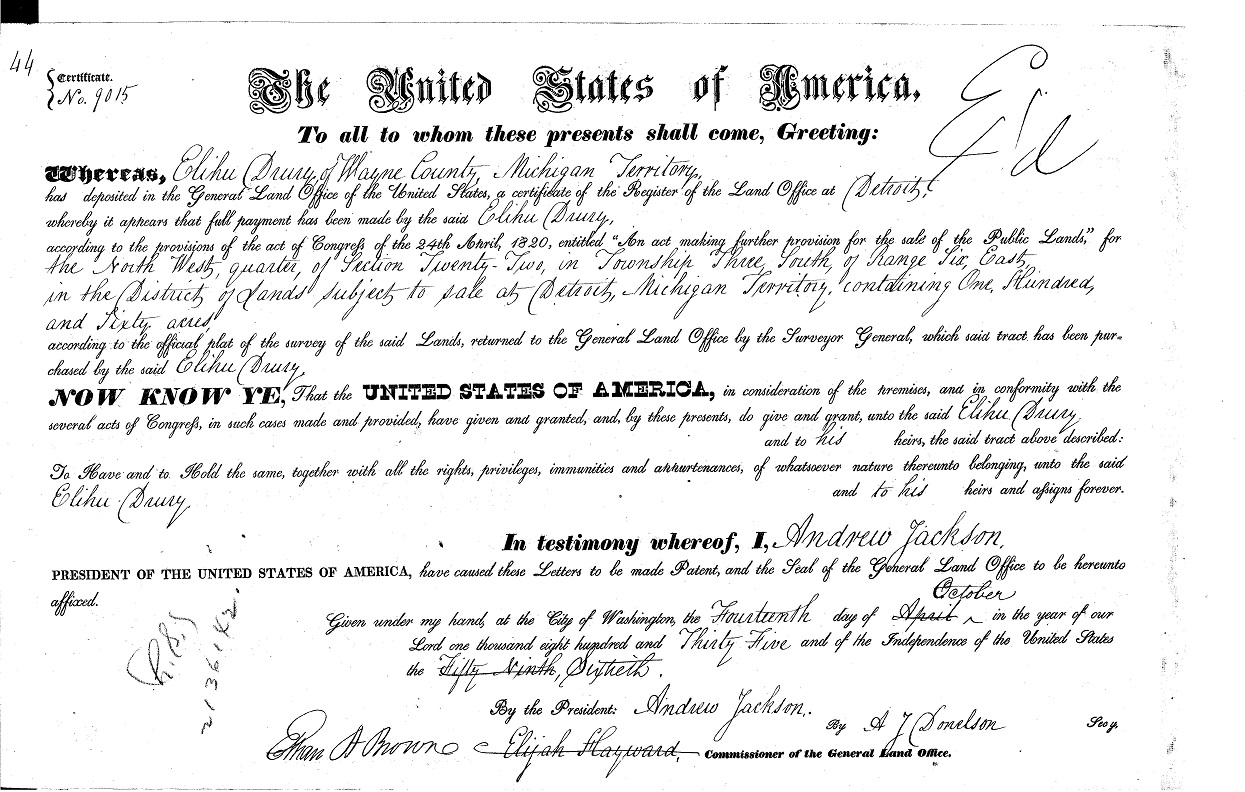 44
Certificate.
No. 9015
The United States of America,
Ex'd
To all to whom these presents shall come, Greeting:
Whereas, Elihu Drury, of Wayne County, Michigan Territory,
has deposited in the General Land Office of the United States, a certificate of the Register of the Land Office at Detroit,
whereby it appears that full payment has been made by the said Elihu Drury,
according to the provisions of the act of Congress of the 24th April, 1820, entitled "An act making further provision for the sale of the Public Lands," for
the North West, quarter, of Section Twenty-Two, in Township Three, South, of Range Six, East,
in the District of Lands subject to sale at Detroit, Michigan Territory, containing One, Hundred,
and Sixty acres,
according to the official plat of the survey of the said Lands, returned to the General Land Office by the Surveyor General, which said tract has been pur-
chased by the said Elihu Drury,
NOW KNOW YE, That the UNITED STATES OF AMERICA, in consideration of the premises, and in conformity with the
several acts of Congress, in such cases made and provided, have given and granted, and, by these presents, do give and grant, unto the said Elihu Drury,
and to his heirs, the said tract above described:
To Have and to Hold the same, together with all the rights, privileges, immunities and appurtenances, of whatsoever nature thereunto belonging, unto the said
Elihu Drury,
and to his heirs and assigns forever.
In testimony whereof, I, Andrew Jackson,
PRESIDENT OF THE UNITED STATES OF AMERICA, have caused these Letters to be made Patent, and the Seal of the General Land Office to be hereunto
affixed.
October
Given under my hand, at the City of Washington, the Fourteenth day of April in the year of our
Lord one thousand eight hundred and Thirty Five and of the Independence of the United States
the Fifty Ninth, Sixtieth.
By the President: Andrew Jackson,
By A J Donelson Secy.
Ethan A Brown Elijah Hayward, Commissioner of the General Land Office.